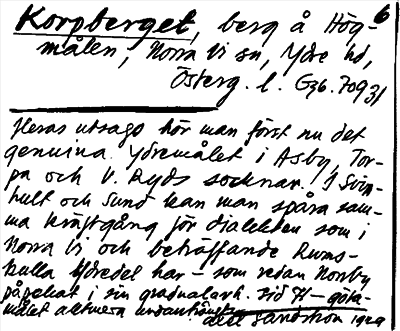 6
Korpberget, berg å Hög-
målen, Norra Vi sn, Ydre hd,
Österg. l. G36.7093/
Heras utsago hör man först nu det
genuina Ydremålet i Asby, Tor-
pa och V. Ryds socknar. I Svin-
hult och Sund kan man spåra sam-
ma kräftgång för dialekten som i
Norra Vi och beträffande Rums-
kulla Ydredel har – som redan Norrby
påpekat i sin gradualavh. sid 71 – göta-
målet
Sandström 1929